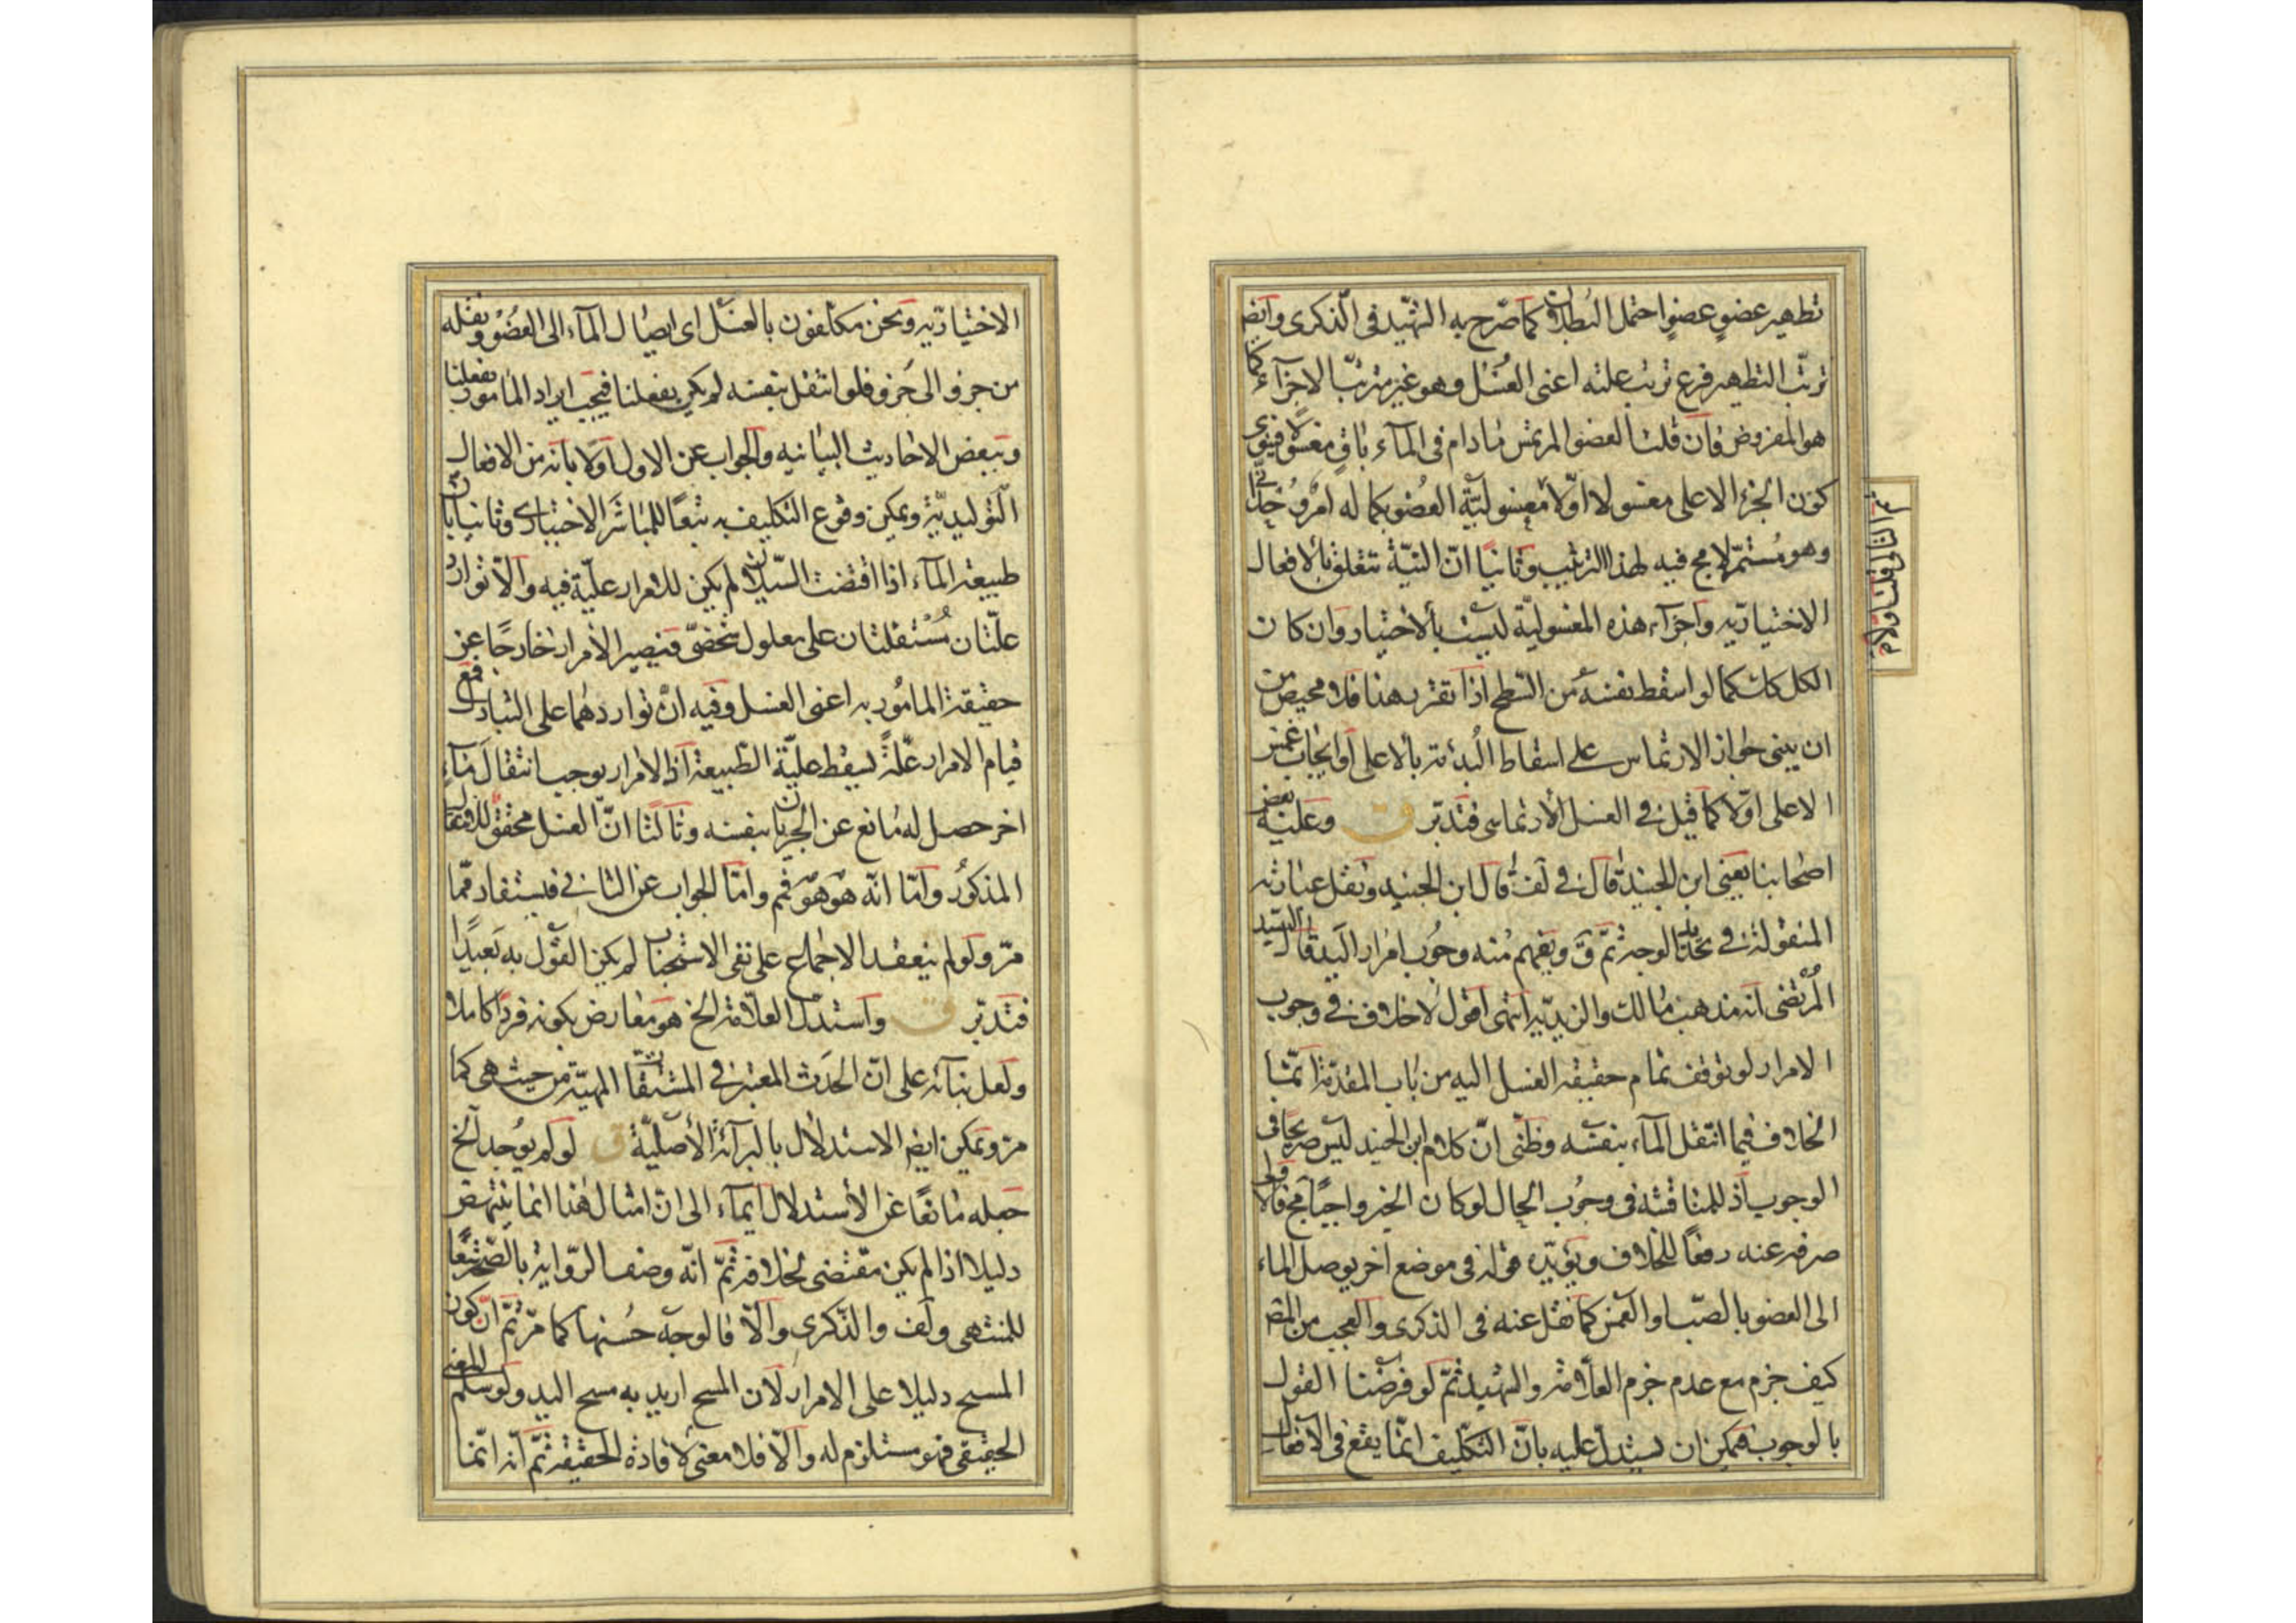 تطهير عضو عضو احتمل البطلان كما صرّح به الشهيد فى الذكرى وايضا
ترتّب التطهير فرع ترتب علته اعنى الغسل وهو غير مترتب الاجزآء كما
هو المفروض فان قلت العضو المرتمس مادام فى المآء باق مغسولا فينوى
كون الجزء الاعلى مغسولا اوّلا مغسوليّة العضو بكماله امر
وهو مستمرّ لامح فيه لهذا الترتيب وثانيا انّ النيّة تتعلق بالافعال
الاختياريه واجزآء هذه المغسوليّة ليست بالاختيار وان كان
الكل كك كما لو اسقط نفسه من السّطح اذا تقرر هذا فلا محيص من
ان يبنى جواز الارتماس على اسقاط البدئة بالاعلى او ايجاب غمس
الاعلى اوّلا كما قيل فى الغسل الارتماسى فتدبّر ق وعليه بعض
اصحابنا يعنى ابن الجنيد قال فى لف قال ابن الجنيد ونقل عبارته
المنقولة فى تحديد الوجه ثمّ ق ويفهم منه وجوب امرار اليد قال السيد
المرتضى انه مذهب مالك والزيديّه انتهى اقول لاخلاف فى وجوب
الامرار لو توقف تمام حقيقة الغسل اليه من باب المقدّمة انّما
الخلاف فيما انتقل المآء بنفسه وظنّى انّ كلام ابن الجنيد ليس صريحا فى
الوجوب اذ للمناقشة فى وجوب الحال لو كان الخبر واجبا مج فالاولى
صرفه عنه دفعا للخلاف ويؤيّده قوله فى موضع اخر يوصل الماء
الى العضو بالصّب او الغمس كما نقل عنه فى الذكرى والعجب من المص
كيف جزم مع عدم جزم العلّامة والشهيد ثمّ لو فرضنا القول
بالوجوب فيمكن ان يستدلّ عليه بانّ التكليف انّما يقع فى الافعال
الاختياريّه ونحن مكلفون بالغسل اى ايصال المآء الى العضو ونقله
من جزو الى جزو فلو انتقل بنفسه لم يكن بفعلنا فيجب ايراد المامور بفعلنا
وببعض الاحاديث البيانيه والجواب عن الاول اوّلا بانه من الافعال
التّوليديّة ويمكن وقوع التكليف به تبعا للمباشر الاختيارى وثانيا بان
طبيعة المآء اذا اقتضت السّيلان لم يكن للامرار عليّة فيه والّا توارد
علّتان مستقلتان على معلول شخصىّ فيصير الامرار خارجا عن
حقيقة المامور به اعنى الغسل وفيه انّ تواردهما على التبادل فمع
قيام الامرار علّة يسقط عليّة الطّبيعة اذ الامرار يوجب انتقال مآء
اخر حصل له مانع عن الجريان بنفسه وثالثا انّ الغسل محقق
المذكور وامّا انّه هو هو فمم وامّا الجواب عن الثانى فيستفاد ممّا
مرّ ولو لم ينعقد الاجماع على نفى الاستحباب لم يكن القول به بعيدا
فتدبّر ق واستدل العلّامة الخ هو معارض بكونه فردا كاملا
ولعل بنآئه على انّ الحدث المعتبر فى المشتقات المهيّة من حيث هى كما
مرّ ويمكن ايضا الاستدلال بالبرآئة الأصليّة ق لو لم يوجد الخ
جعله مانعا عن الاستدلال ايمآء الى ان امثال هذا انما ينتهض
دليلا اذا لم يكن مقتضى لخلافه ثمّ انّه وصف الرّواية بالصّحة تبعا
للمنتهى ولف والذّكرى والّا فالوجه حسنها كما مرّ ثمّ انّ كون
المسح دليلا على الامرار لان المسح اريد به مسح اليد ولو سلم المعنى
الحقيقى فهو مستلزم له والّا فلا معنى لافادة الحقيقة ثمّ انه انّما